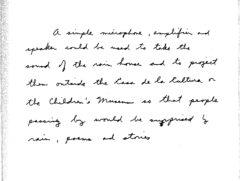 A simple microphone, amplifier and
speaker could be used to take the
sound of the rain house and to project
them outside the Casa de la Cultura or
the Children's Museum so that people
passing by would be surprised by
rain, poems and stories